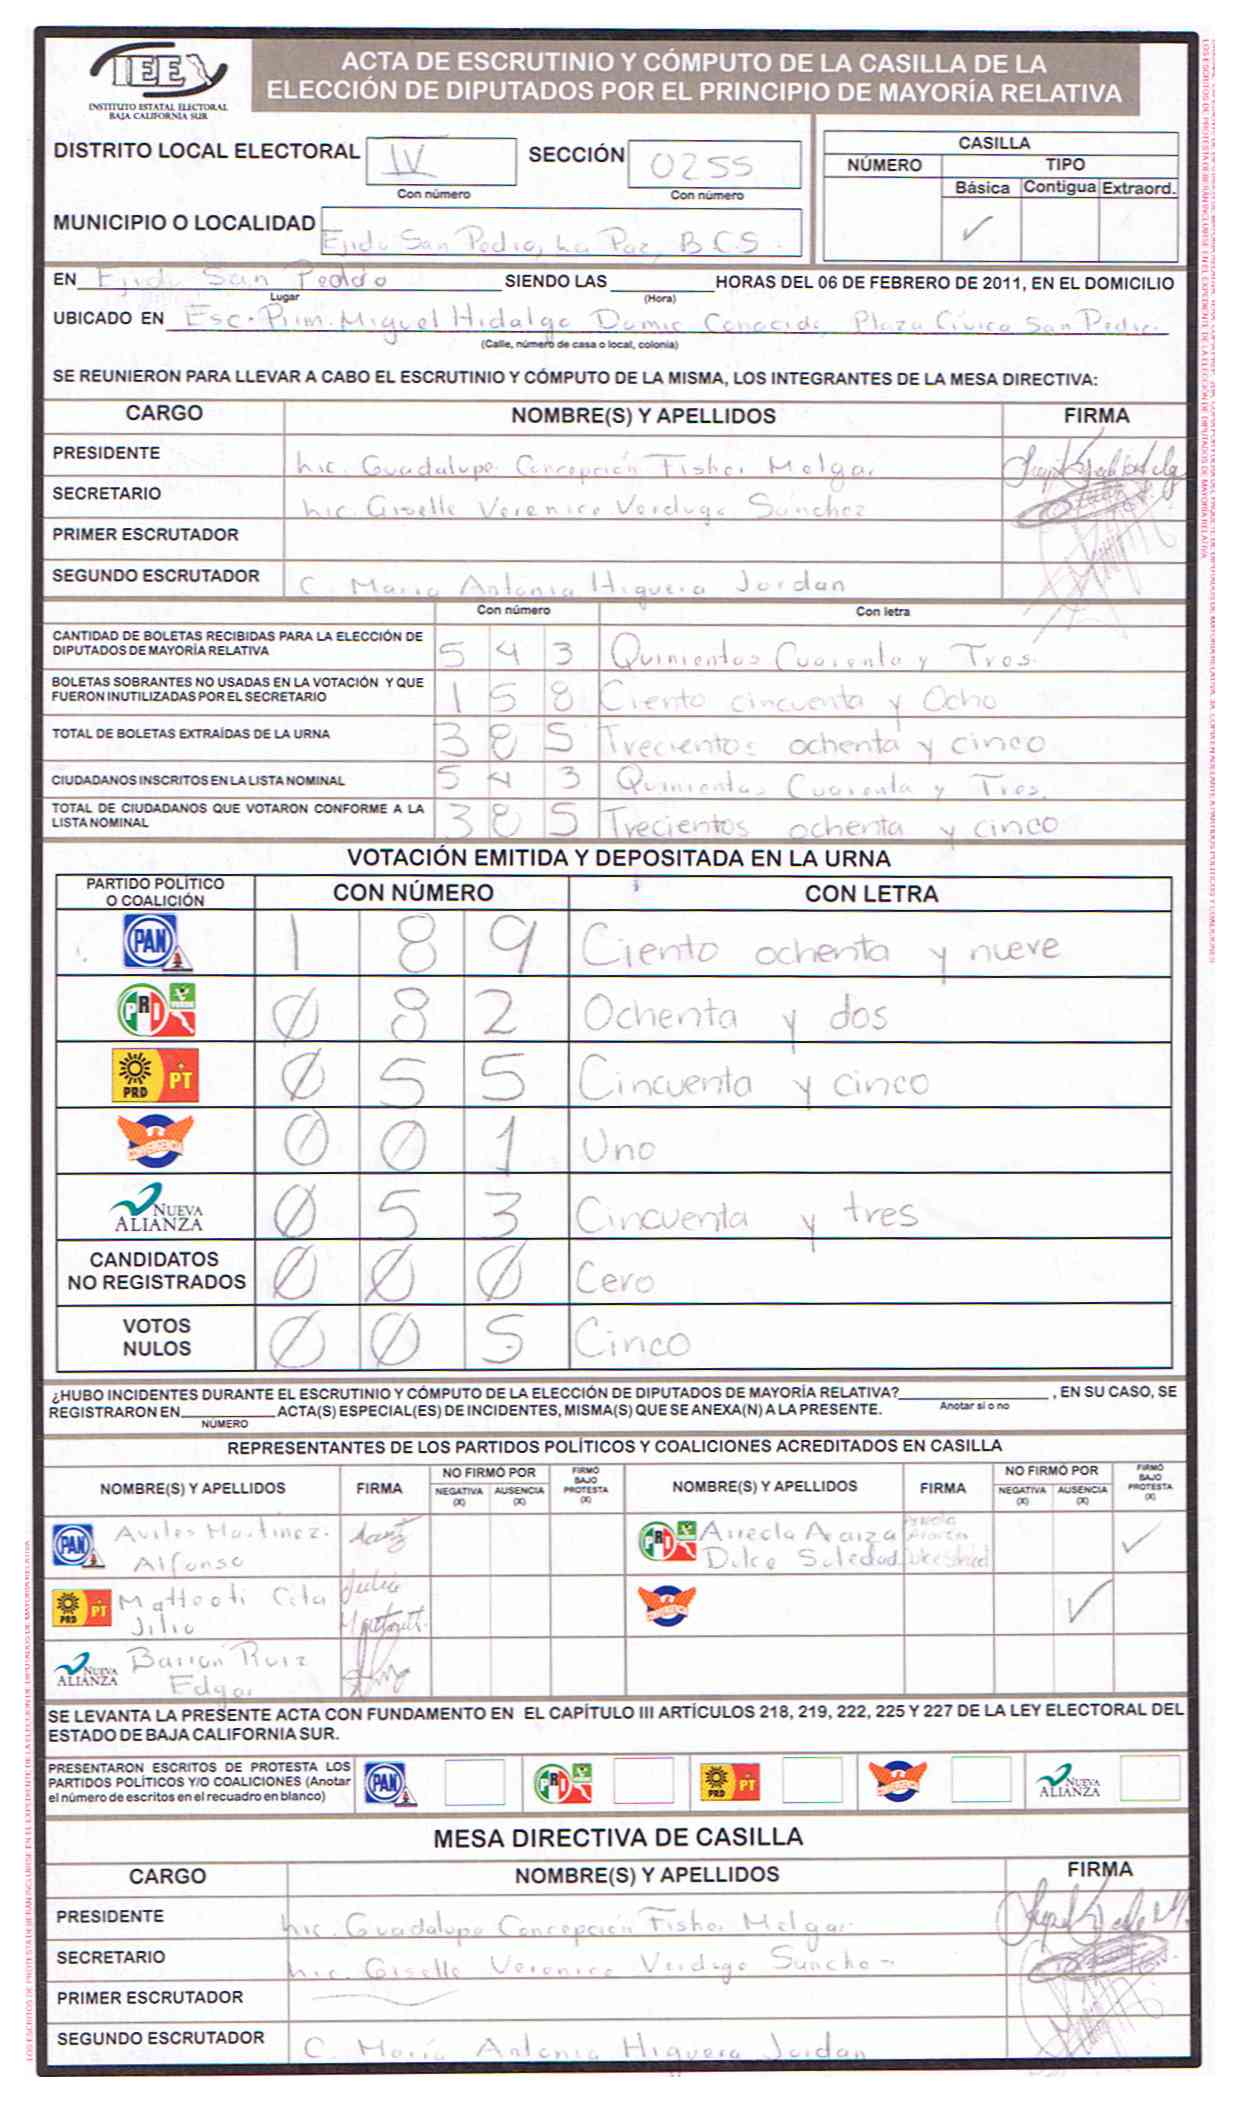 IEE
INSTITUTO ESTATAL ELECTORAL
BAJA CALIFORNIA SUR
ACTA DE ESCRUTINIO Y CÓMPUTO DE LA CASILLA DE LA
ELECCIÓN DE DIPUTADOS POR EL PRINCIPIO DE MAYORÍA RELATIVA
DISTRITO LOCAL ELECTORAL IV SECCIÓN 0255
Con número Con número
CASILLA
NÚMERO TIPO
Básica Contigua Extraord.
✓
MUNICIPIO O LOCALIDAD Ejido San Pedro, La Paz, B.C.S.
EN Ejido San Pedro SIENDO LAS HORAS DEL 06 DE FEBRERO DE 2011, EN EL DOMICILIO
Lugar (Hora)
UBICADO EN Esc. Prim. Miguel Hidalgo Domic Conocido Plaza Cívica San Pedro.
(Calle, número de casa o local, colonia)
SE REUNIERON PARA LLEVAR A CABO EL ESCRUTINIO Y CÓMPUTO DE LA MISMA, LOS INTEGRANTES DE LA MESA DIRECTIVA:
CARGO NOMBRE(S) Y APELLIDOS FIRMA
PRESIDENTE Lic. Guadalupe Concepción Fisher Melgar
SECRETARIO Lic. Giselle Veronica Verdugo Sanchez
PRIMER ESCRUTADOR
SEGUNDO ESCRUTADOR C. Maria Antonia Higuera Jordan
Con número Con letra
CANTIDAD DE BOLETAS RECIBIDAS PARA LA ELECCIÓN DE
DIPUTADOS DE MAYORÍA RELATIVA 5 4 3 Quinientos Cuarenta y Tres.
BOLETAS SOBRANTES NO USADAS EN LA VOTACIÓN Y QUE
FUERON INUTILIZADAS POR EL SECRETARIO 1 5 8 Ciento cincuenta y Ocho
TOTAL DE BOLETAS EXTRAÍDAS DE LA URNA 3 8 5 Trecientos ochenta y cinco
CIUDADANOS INSCRITOS EN LA LISTA NOMINAL 5 4 3 Quinientos Cuarenta y Tres.
TOTAL DE CIUDADANOS QUE VOTARON CONFORME A LA
LISTA NOMINAL 3 8 5 Trecientos ochenta y cinco
VOTACIÓN EMITIDA Y DEPOSITADA EN LA URNA
PARTIDO POLÍTICO
O COALICIÓN CON NÚMERO CON LETRA
PAN 1 8 9 Ciento ochenta y nueve
PRI VERDE Ø 8 2 Ochenta y dos
PRD PT Ø 5 5 Cincuenta y cinco
CONVERGENCIA Ø Ø 1 Uno
NUEVA ALIANZA Ø 5 3 Cincuenta y tres
CANDIDATOS
NO REGISTRADOS Ø Ø Ø Cero
VOTOS
NULOS Ø Ø 5 Cinco
¿HUBO INCIDENTES DURANTE EL ESCRUTINIO Y CÓMPUTO DE LA ELECCIÓN DE DIPUTADOS DE MAYORÍA RELATIVA? , EN SU CASO, SE
Anotar sí o no
REGISTRARON EN ACTA(S) ESPECIAL(ES) DE INCIDENTES, MISMA(S) QUE SE ANEXA(N) A LA PRESENTE.
NÚMERO
REPRESENTANTES DE LOS PARTIDOS POLÍTICOS Y COALICIONES ACREDITADOS EN CASILLA
NOMBRE(S) Y APELLIDOS FIRMA NO FIRMÓ POR NEGATIVA (X) AUSENCIA (X) FIRMÓ BAJO PROTESTA (X) NOMBRE(S) Y APELLIDOS FIRMA NO FIRMÓ POR NEGATIVA (X) AUSENCIA (X) FIRMÓ BAJO PROTESTA (X)
PAN Aviles Martinez. Alfonso
PRI VERDE Arreola Araiza Dulce Soledad ✓
PRD PT Matteoti Cota Julio
CONVERGENCIA ✓
NUEVA ALIANZA Barron Ruiz Edgar
SE LEVANTA LA PRESENTE ACTA CON FUNDAMENTO EN EL CAPÍTULO III ARTÍCULOS 218, 219, 222, 225 Y 227 DE LA LEY ELECTORAL DEL
ESTADO DE BAJA CALIFORNIA SUR.
PRESENTARON ESCRITOS DE PROTESTA LOS
PARTIDOS POLÍTICOS Y/O COALICIONES (Anotar
el número de escritos en el recuadro en blanco)
PAN PRI VERDE PRD PT CONVERGENCIA NUEVA ALIANZA
MESA DIRECTIVA DE CASILLA
CARGO NOMBRE(S) Y APELLIDOS FIRMA
PRESIDENTE Lic. Guadalupe Concepción Fisher Melgar
SECRETARIO Lic. Giselle Veronica Verdugo Sanchez
PRIMER ESCRUTADOR
SEGUNDO ESCRUTADOR C. María Antonia Higuera Jordan